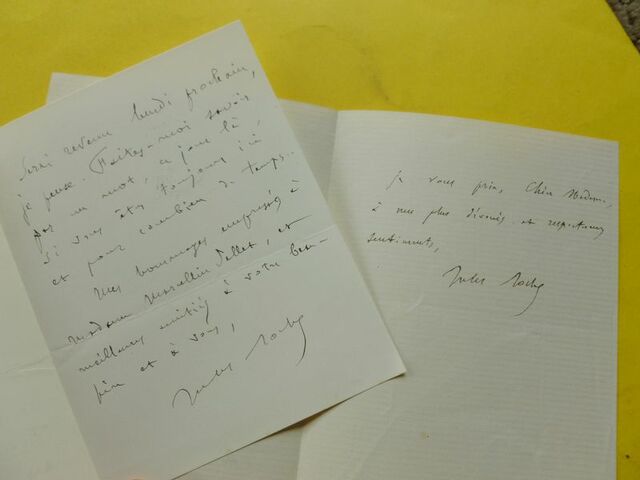 serai revenu lundi prochain,
je pense. Faites-moi savoir
par un mot, ce jour là,
si vous êtes toujours ici
et pour combien de temps.
Mes hommages empressés à
Madame Marcellin Pellet, et
meilleures amitiés à votre beau-
père et à vous,
Jules Roche
je vous prie, Chère Madame,
à mes plus dévoués et respectueux
sentiments,
Jules Roche